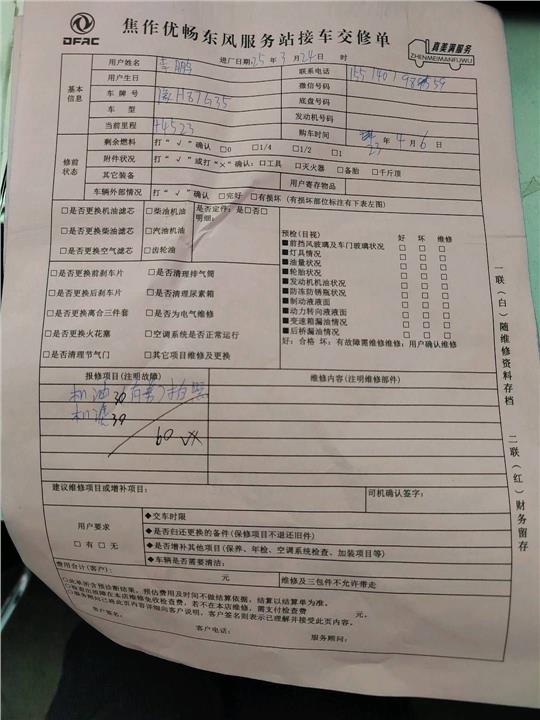 DFAC
焦作优畅东风服务站接车交修单
真美满服务
ZHENMEIMANFUWU
进厂日期:25年3月24日 时
基本信息
用户姓名 李鹏 联系电话
用户生日 微信号码
车牌号 豫H87G35 底盘号码
车型 发动机号码
当前里程 14523 购车时间 23年4月6日
修前状态
剩余燃料 打“√”确认 □0 □1/4 □1/2 □1
附件状况 打“√”或打“×”确认：□工具 □灭火器 □备胎 □千斤顶
其它装备 用户寄存物品
车辆外部情况 打“√”确认 □完好 □有损坏（有损坏部位标注有下表左图）
□是否更换机油滤芯 □柴油机油 是否定件：是□否□
明细：
□是否更换柴油滤芯 □汽油机油
□是否更换空气滤芯 □齿轮油
□是否更换前刹车片 □是否清理排气筒
□是否更换后刹车片 □是否清理尿素箱
□是否更换离合三件套 □是否为电气维修
□是否更换火花塞 □空调系统是否正常运行
□是否清理节气门 □其它项目维修及更换
预检(目视) 好 坏 维修
■前挡风玻璃及车门玻璃状况 □ □ □
■灯具情况 □ □ □
■油量状况 □ □ □
■轮胎状况 □ □ □
■发动机机油状况 □ □ □
■防冻防锈瓶状况 □ □ □
■制动液液面 □ □ □
■动力转向液液面 □ □ □
■变速箱漏油情况 □ □ □
■后桥漏油情况 □ □ □
好：合格 坏：有故障需维修维修：用户确认维修
报修项目(注明故障) 维修内容(注明维修部件)
机油30
机滤30
60
建议维修项目或增补项目： 司机确认签字：
用户要求
□有 □无
◆交车时限
◆是否归还更换的备件(保修项目不退还旧件)
◆是否增补其他项目(保养、年检、空调系统检查、加装项目等)
◆车辆是否需要清洁:
费用合计(客户)： 元 维修及三包件不允许带走
□此单所含预诊断结果，预估费用及时间不做结算依据，结算以结算单为准。
□检查出故障在本店维修免收检查费，若不在本店维修，需支付检查费 元。
□服务顾问已将此页内容详细向客户说明，客户签名则表示已理解并接受此页内容。
客户签名：
客户电话： 服务顾问：
一联（白）随维修资料存档
二联（红）财务留存